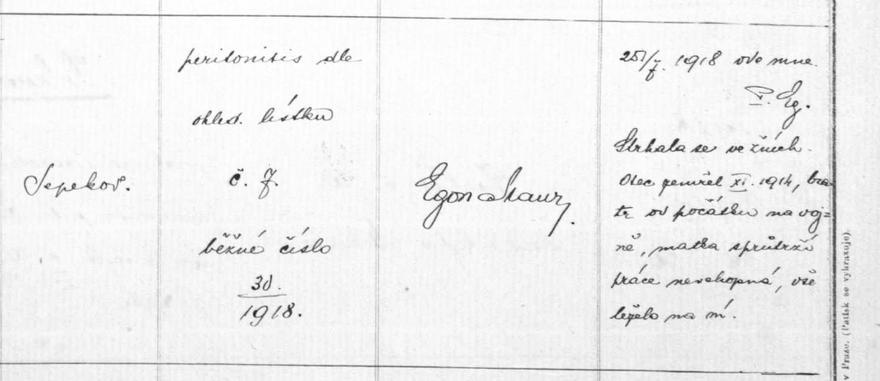 Sepekov.
peritonitis dle
ohled. lístku
č. 7.
běžné číslo
30.
1918.
Egon
25/7. 1918 ode mne
Strhala se ve žních.
Otec zemřel XI. 1914, bra-
tr od počátku na voj=
ně, matka
práce neschopná, vše
leželo na ní.
v Praze. (Patisk se vyhrazuje).